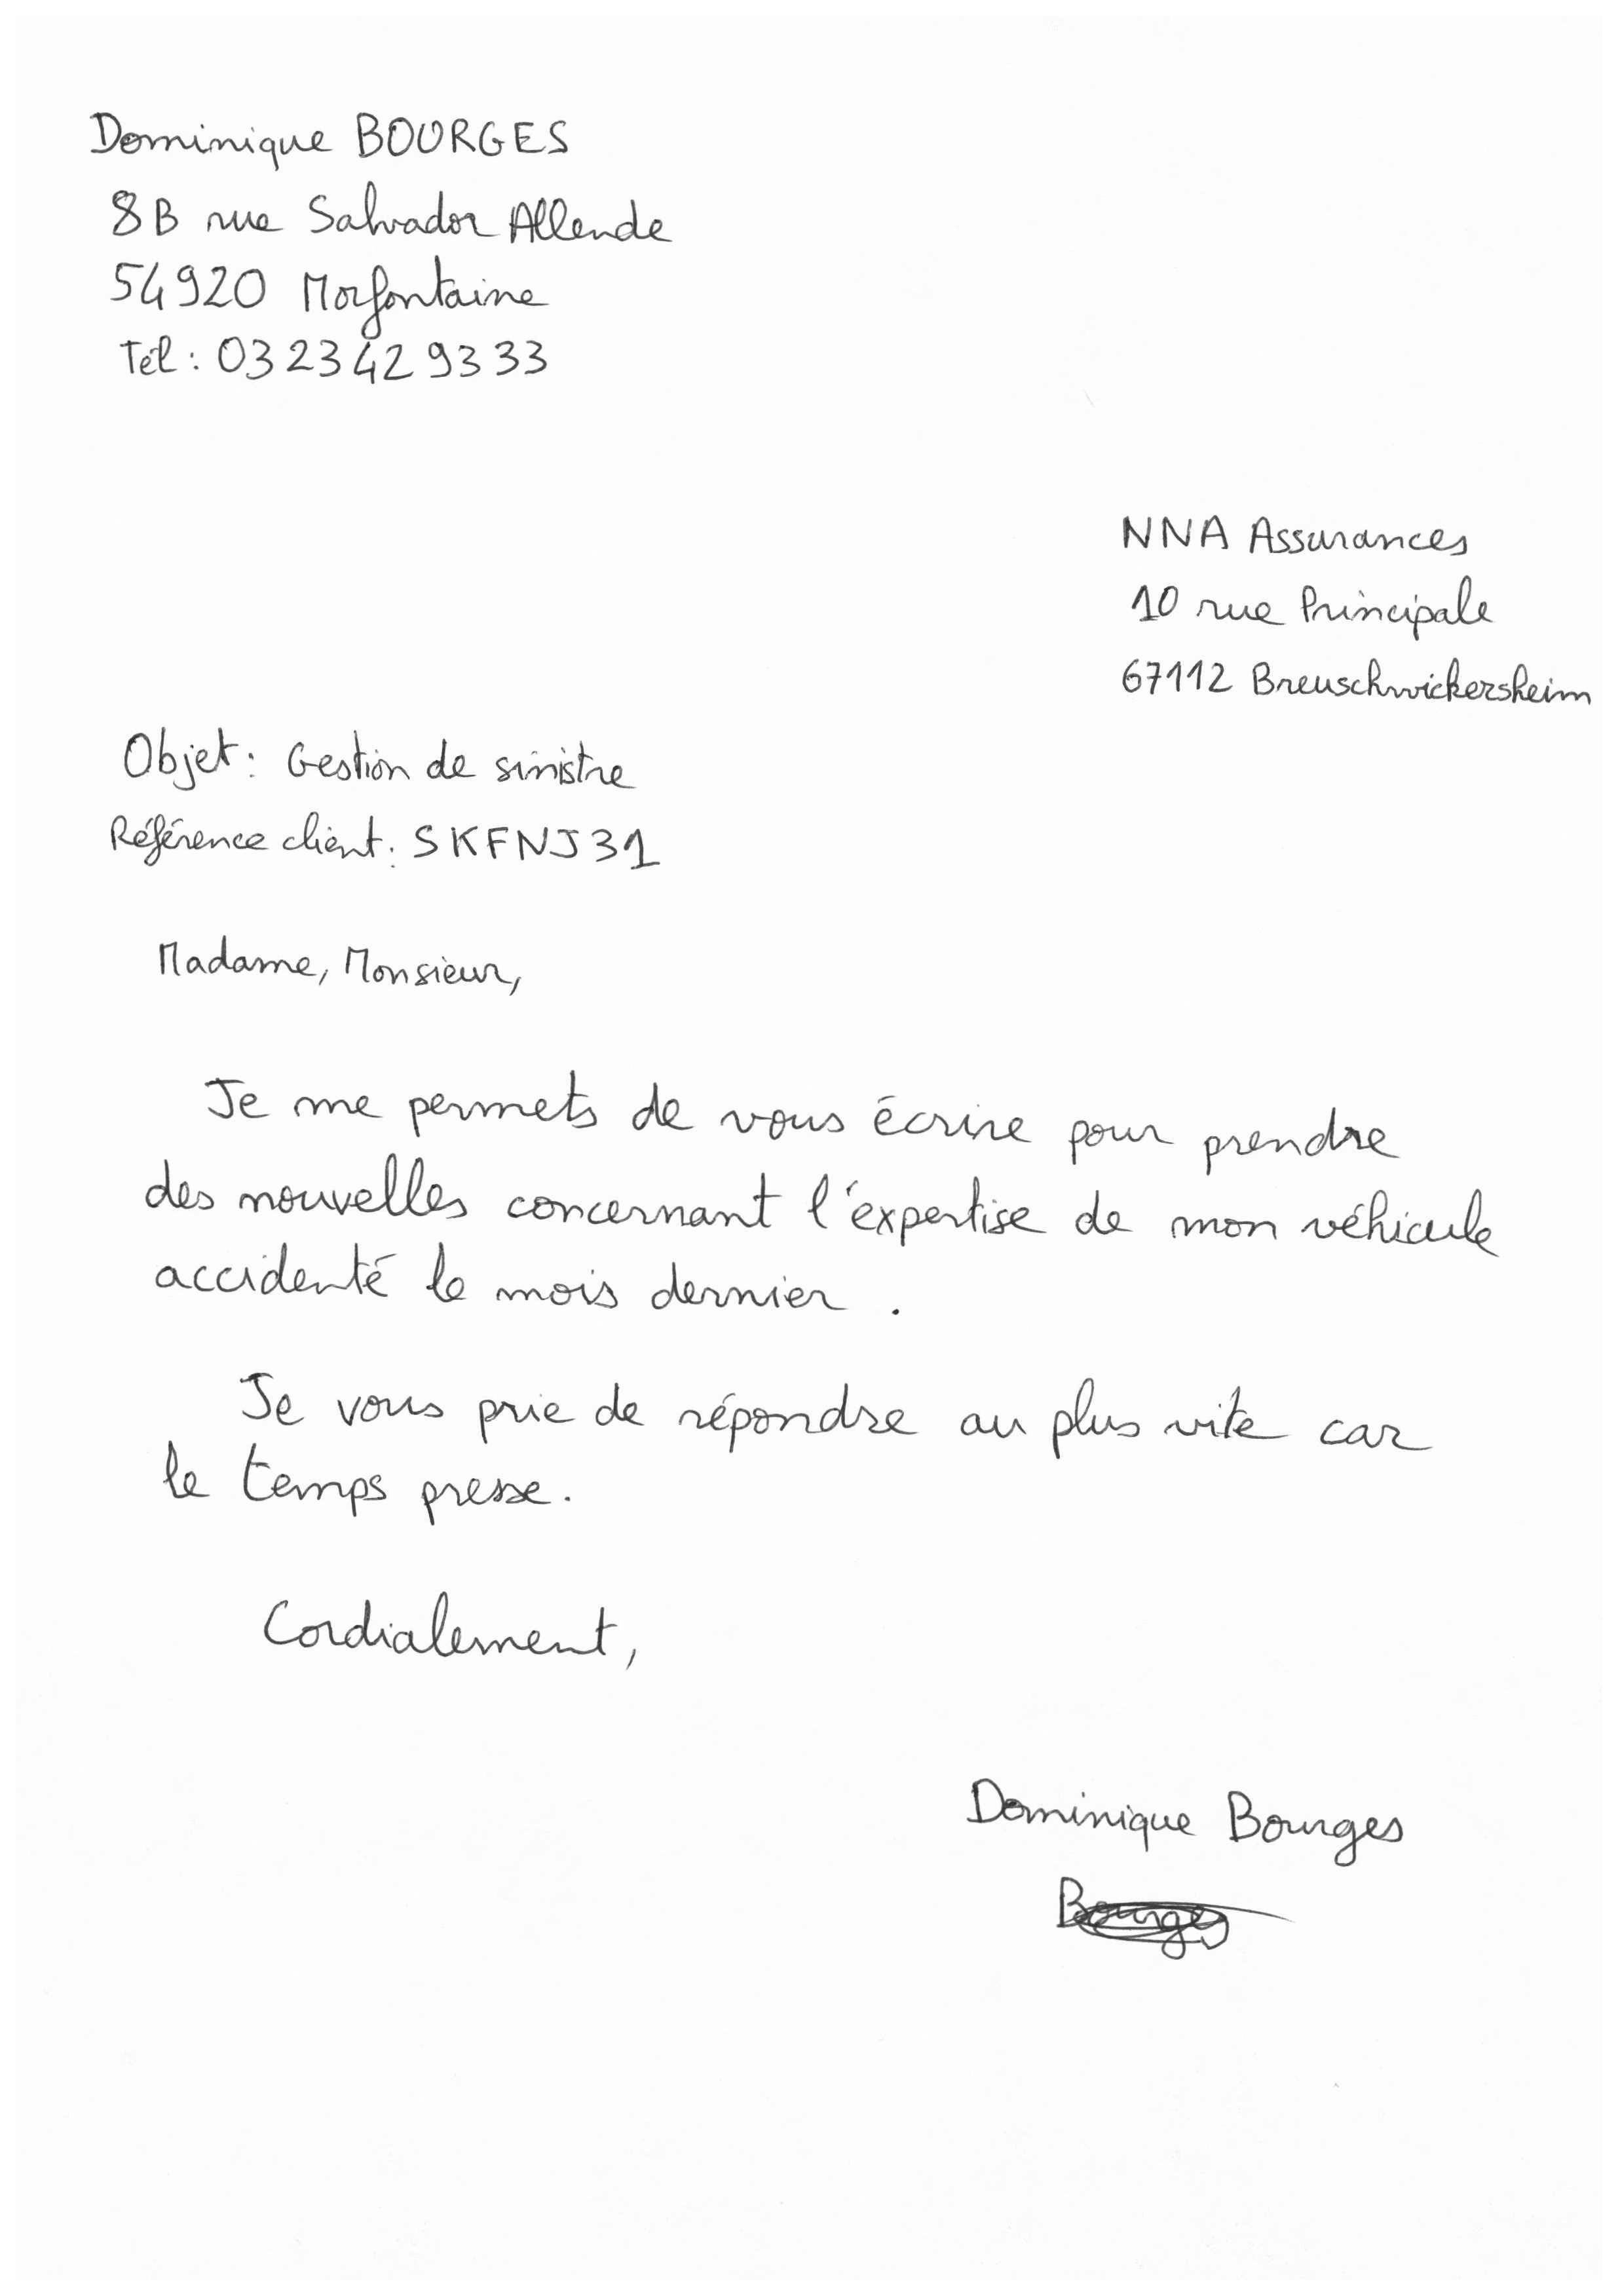 Dominique BOURGES
8B rue Salvador Allende
54920 Morfontaine
Tél : 03 23 42 93 33
NNA Assurances
10 rue Principale
67112 Breuschwickersheim
Objet : Gestion de sinistre
Référence client : SKFNJ31
Madame, Monsieur,
Je me permets de vous écrire pour prendre
des nouvelles concernant l'expertise de mon véhicule
accidenté le mois dernier .
Je vous prie de répondre au plus vite car
le temps presse.
Cordialement,
Dominique Bourges
Bourges